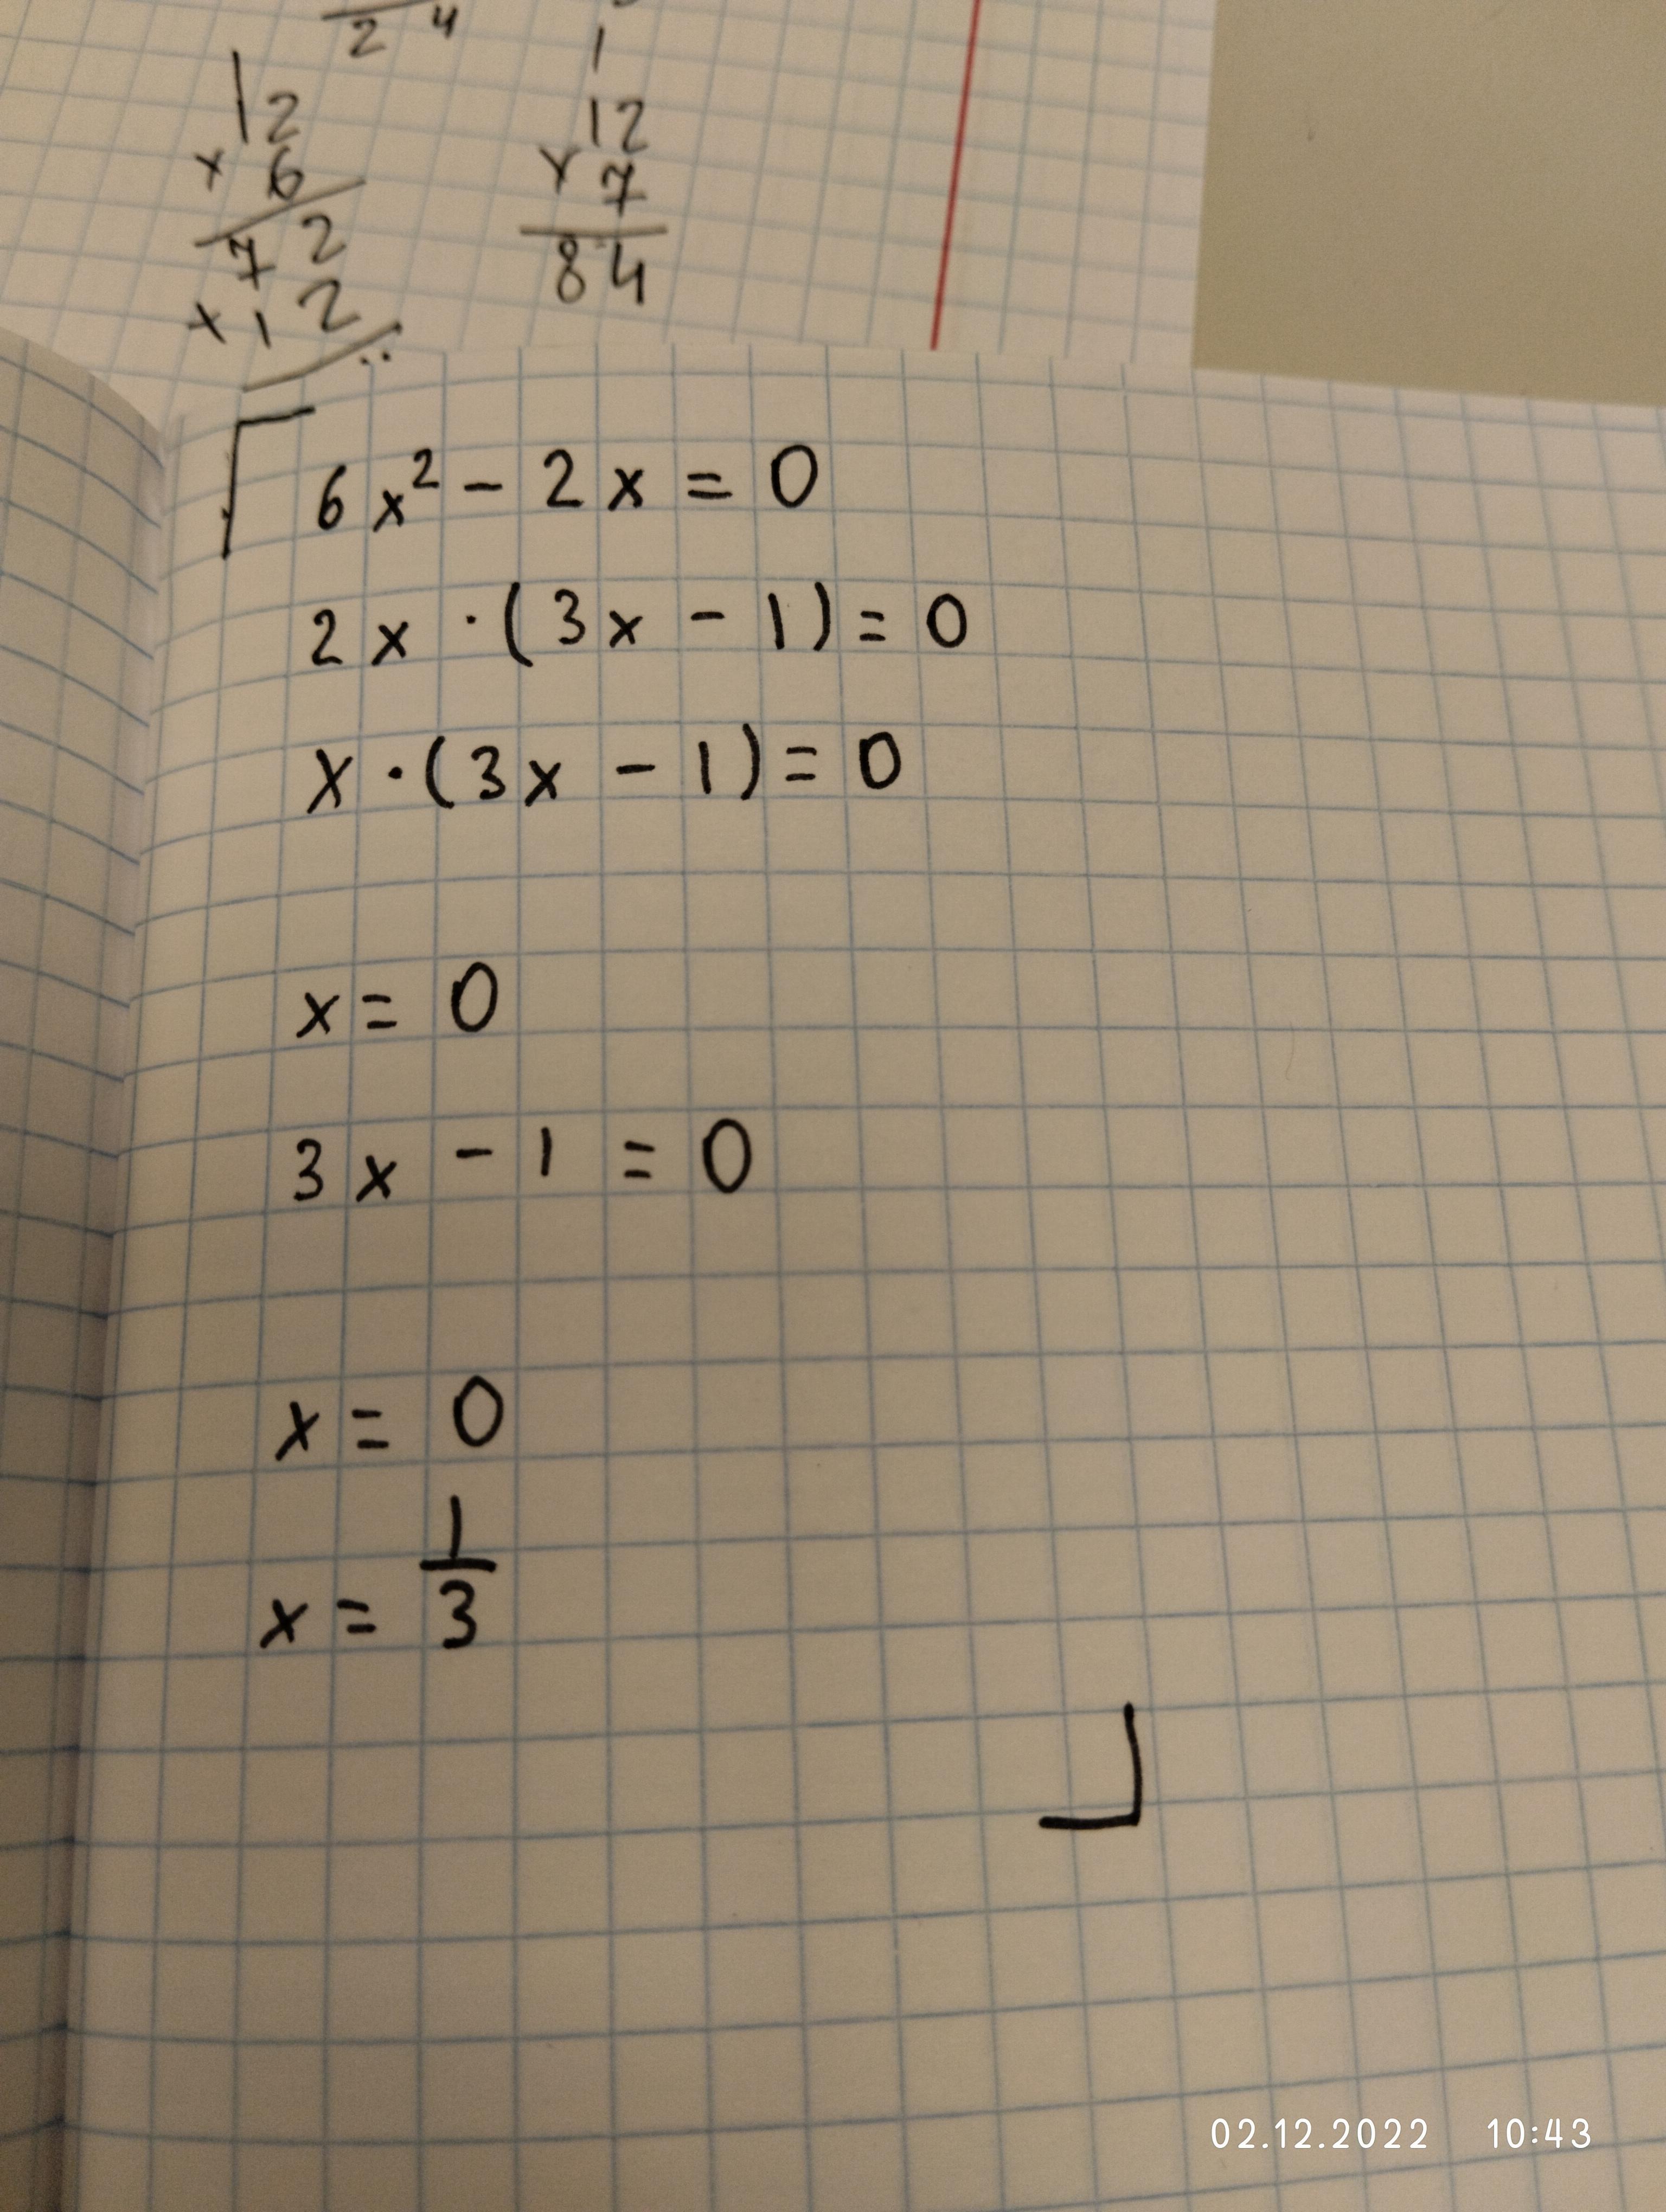 2 4
12
× 6
7 2
× 1 2
1
12
× 7
84
6x² - 2x = 0
2x · (3x - 1) = 0
x · (3x - 1) = 0
x = 0
3x - 1 = 0
x = 0
x = 1/3
02.12.2022 10:43